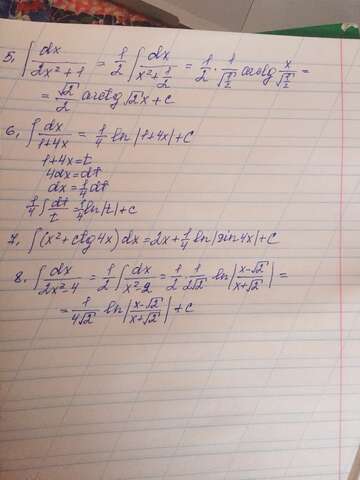 5, ∫ dx/(2x²+1) = 1/2 ∫ dx/(x²+1/2) = 1/2 · 1/√(1/2) arctg x/√(1/2) =
= √2/2 arctg √2x + C
6, ∫ dx/(1+4x) = 1/4 ln|1+4x| + C
1+4x=t
4dx=dt
dx=1/4 dt
1/4 ∫ dt/t = 1/4 ln|t| + C
7, ∫(x²+ctg4x)dx=2x+1/4 ln|sin4x|+C
8. ∫ dx/(2x²-4) = 1/2 ∫ dx/(x²-2) = 1/2 · 1/(2√2) ln|(x-√2)/(x+√2)| =
= 1/(4√2) ln|(x-√2)/(x+√2)| + C